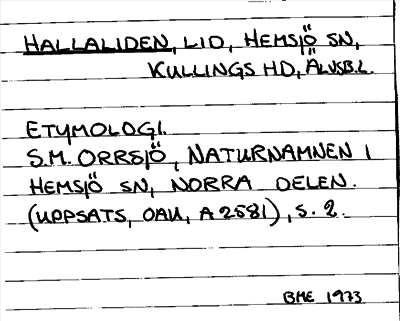 HALLALIDEN, LID, HEMSJÖ SN,
KULLINGS HD, ÄLVSB.L.
ETYMOLOGI.
S.M. ORRSJÖ, NATURNAMNEN I
HEMSJÖ SN, NORRA DELEN.
(UPPSATS, OAU, A 2581), S. 2.
BME 1973